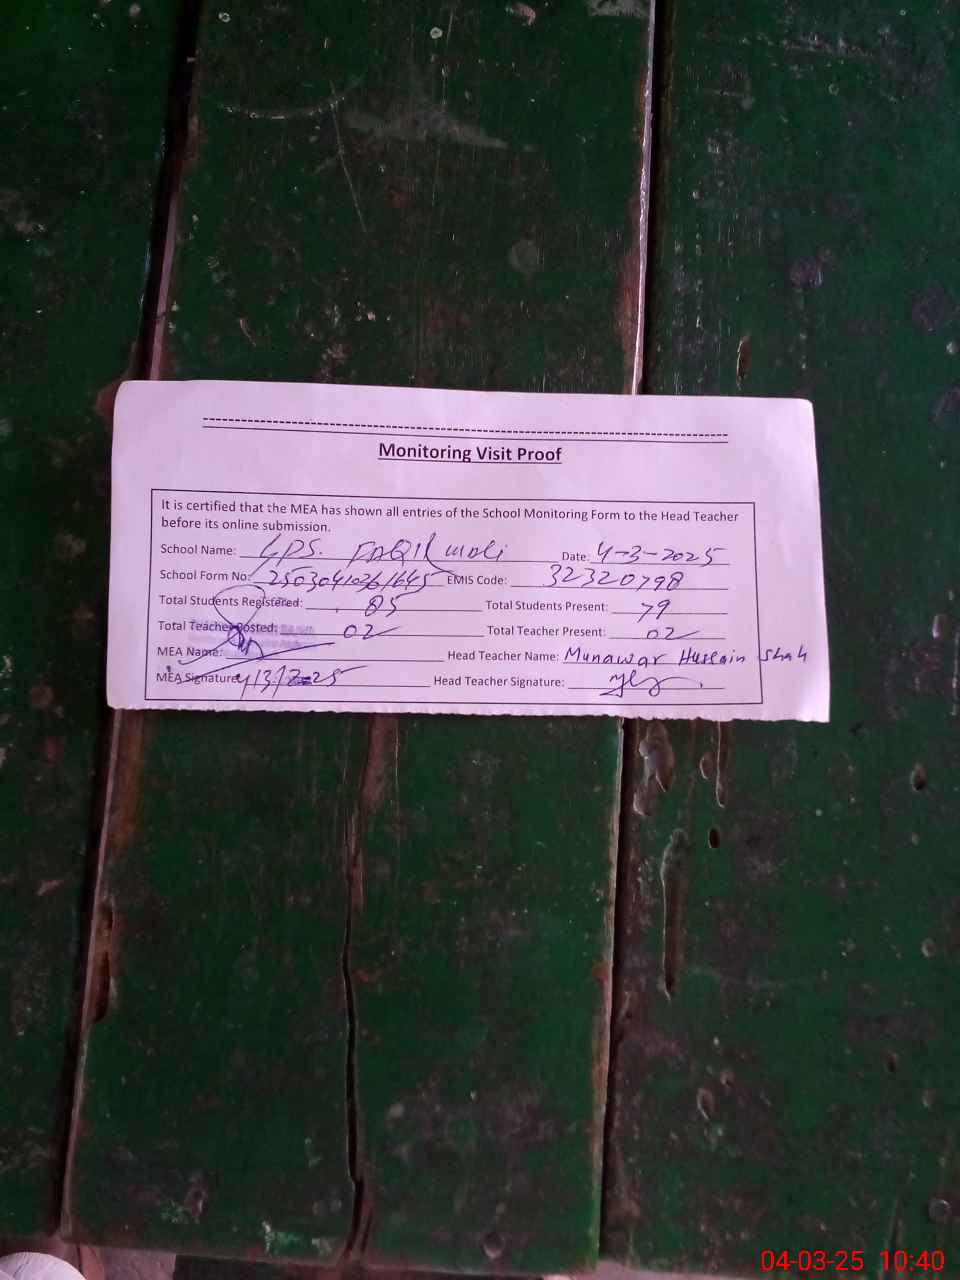 Monitoring Visit Proof
It is certified that the MEA has shown all entries of the School Monitoring Form to the Head Teacher
before its online submission.
School Name: GPS. FAQIR wali Date: 4-3-2025
School Form No: EMIS Code: 32320798
Total Students Registered: 85 Total Students Present: 79
Total Teacher Posted: 02 Total Teacher Present: 02
MEA Name: Head Teacher Name: Munawar Hussain Shah
MEA Signature: 4/3/2025 Head Teacher Signature:
04-03-25 10:40